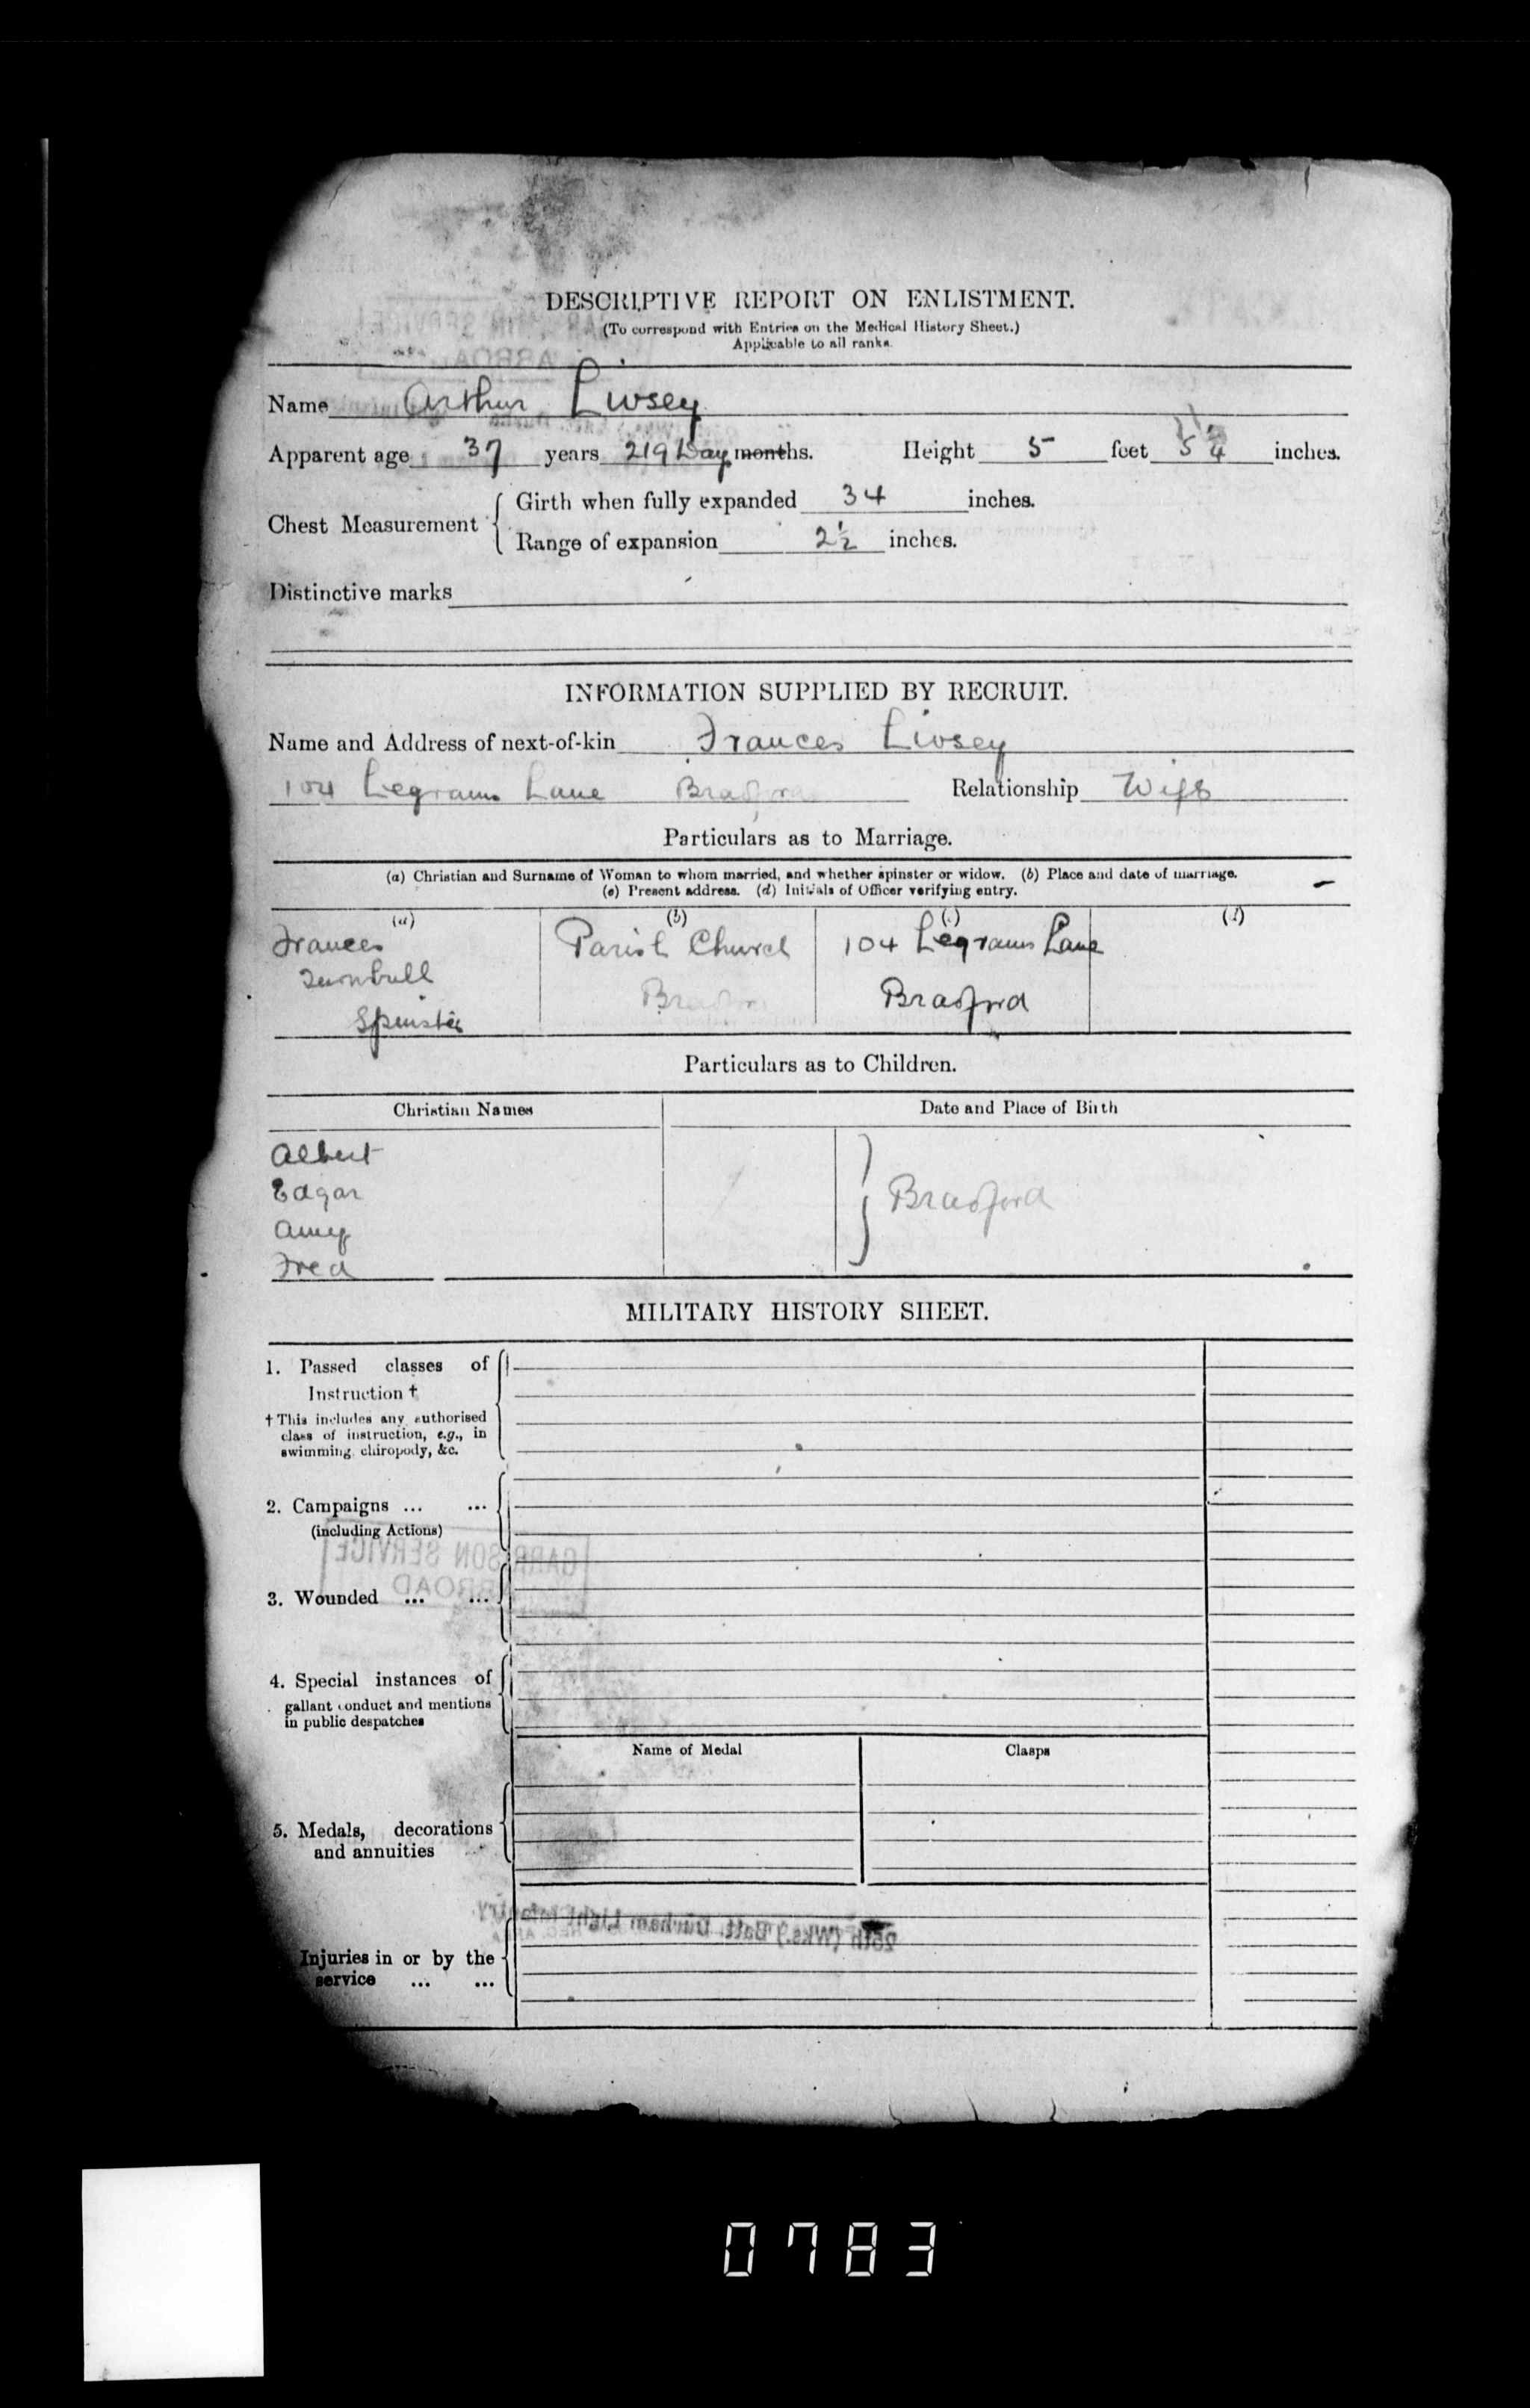 DESCRIPTIVE REPORT ON ENLISTMENT.
(To correspond with Entries on the Medical History Sheet.)
Applicable to all ranks.
Name Arthur Livsey
Apparent age 37 years 219 Days months. Height 5 feet 5 inches.
Chest Measurement { Girth when fully expanded 34 inches.
Range of expansion 2½ inches.
Distinctive marks
INFORMATION SUPPLIED BY RECRUIT.
Name and Address of next-of-kin Frances Livsey
104 Legrams Lane Bradford Relationship Wife
Particulars as to Marriage.
(a) Christian and Surname of Woman to whom married, and whether spinster or widow. (b) Place and date of marriage.
(c) Present address. (d) Initials of Officer verifying entry.
(a) (b) (c) (d)
Frances Parish Church 104 Legrams Lane
Turnbull
Spinster Bradford Bradford
Particulars as to Children.
Christian Names Date and Place of Birth
Albert
Edgar } Bradford
Amy
Fred
MILITARY HISTORY SHEET.
1. Passed classes of
Instruction †
† This includes any authorised
class of instruction, e.g., in
swimming, chiropody, &c.
2. Campaigns ... ...
(including Actions)
GARRISON SERVICE
ABROAD
3. Wounded ... ...
4. Special instances of
gallant conduct and mentions
in public despatches
Name of Medal Clasps
5. Medals, decorations
and annuities
Batt. Durham Light Infantry
Injuries in or by the
service ... ...
0783